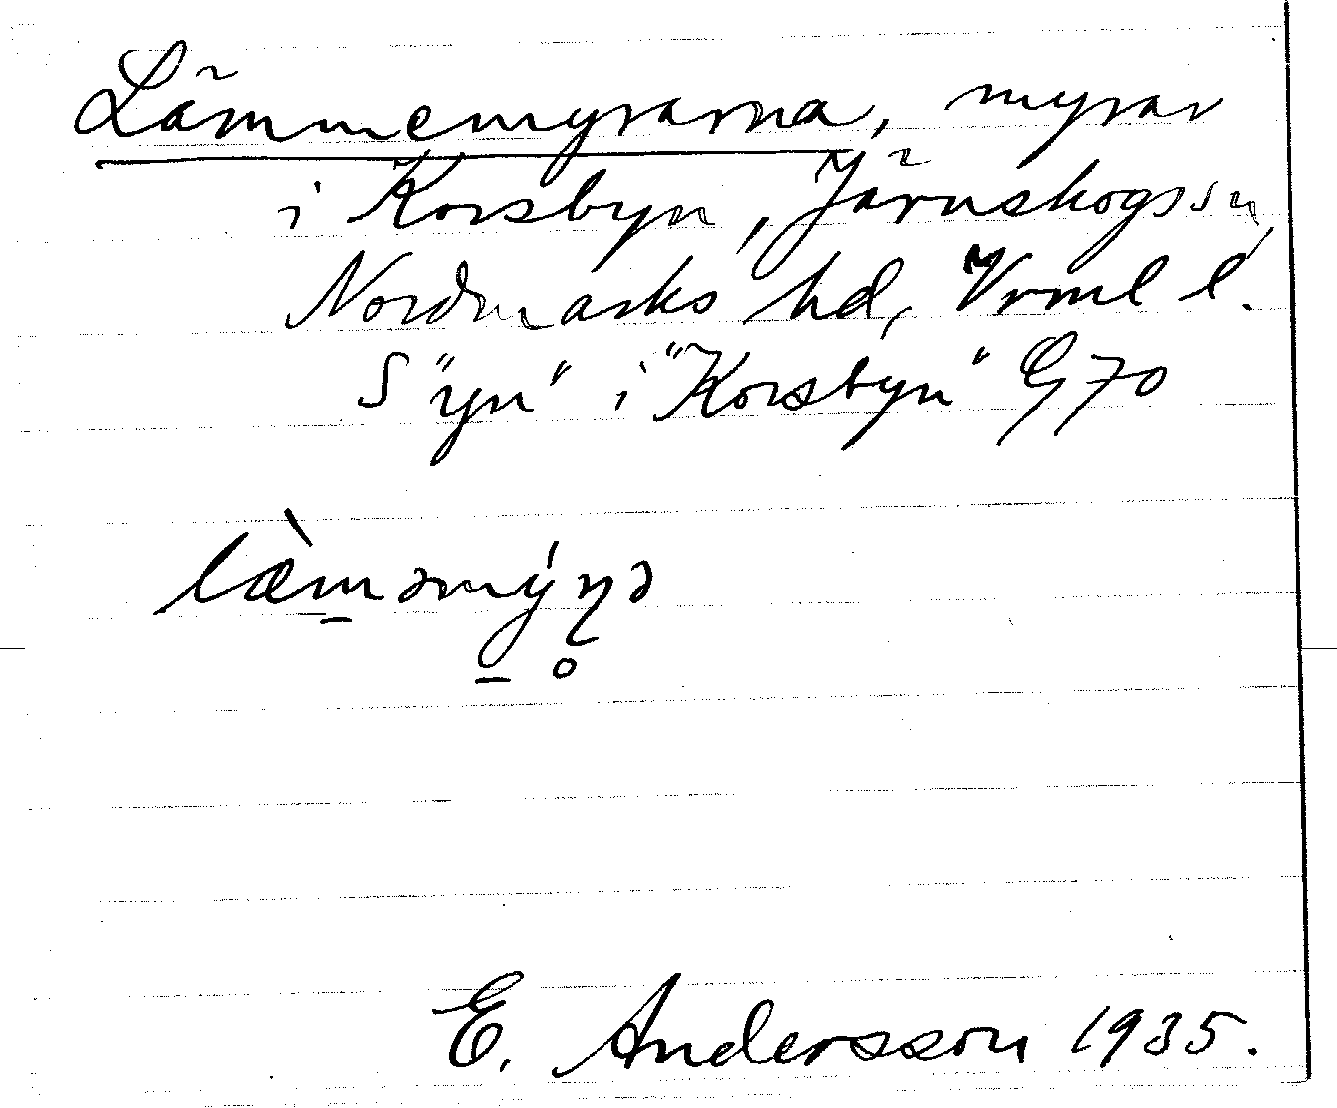 Lämmemyrarna, myrar
i Korsbyn, Järnskogssn,
Nordmarks hd, Vrml l.
S "yn" i "Korsbyn" G 70
læ̀m̱əmý̱ŋ̥ə
E. Andersson 1935.